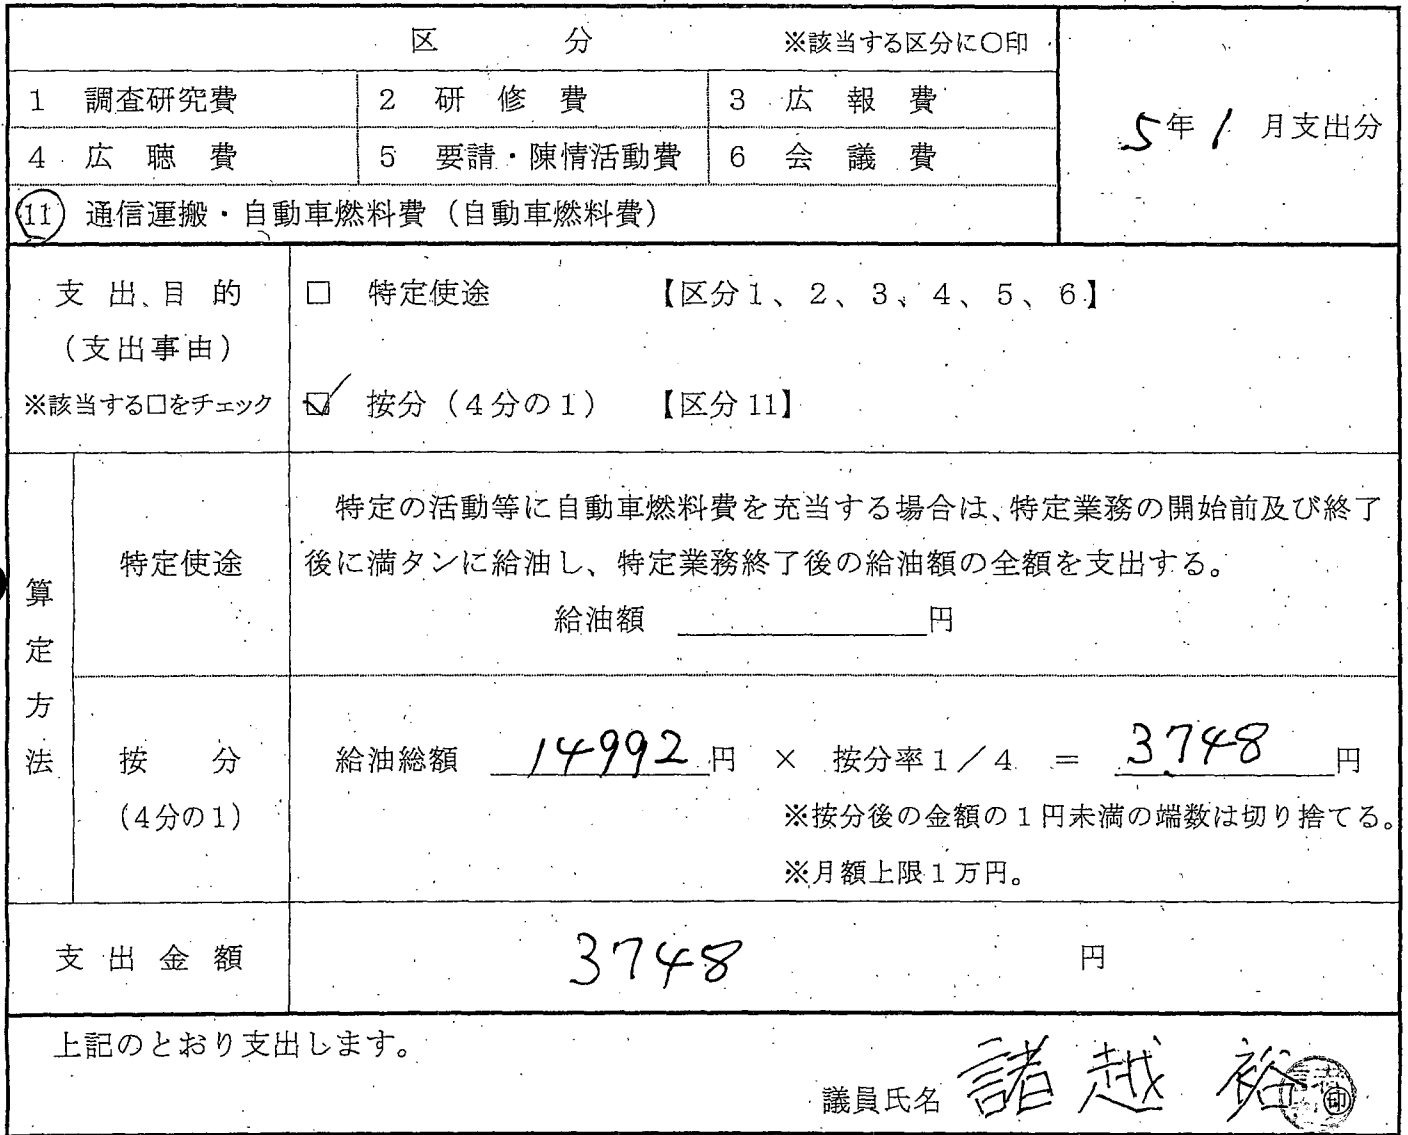 区 分 ※該当する区分に○印
1 調査研究費 2 研修費 3 広報費
5年1月支出分
4 広聴費 5 要請・陳情活動費 6 会議費
11 通信運搬・自動車燃料費（自動車燃料費）
支出目的
（支出事由）
※該当する□をチェック
□ 特定使途 【区分1、2、3、4、5、6】
☑ 按分（4分の1） 【区分11】
算定方法
特定使途
特定の活動等に自動車燃料費を充当する場合は、特定業務の開始前及び終了
後に満タンに給油し、特定業務終了後の給油額の全額を支出する。
給油額 円
按分
（4分の1）
給油総額 14992円 × 按分率1／4 ＝ 3748円
※按分後の金額の1円未満の端数は切り捨てる。
※月額上限1万円。
支出金額 3748 円
上記のとおり支出します。
議員氏名 諸越 裕 印